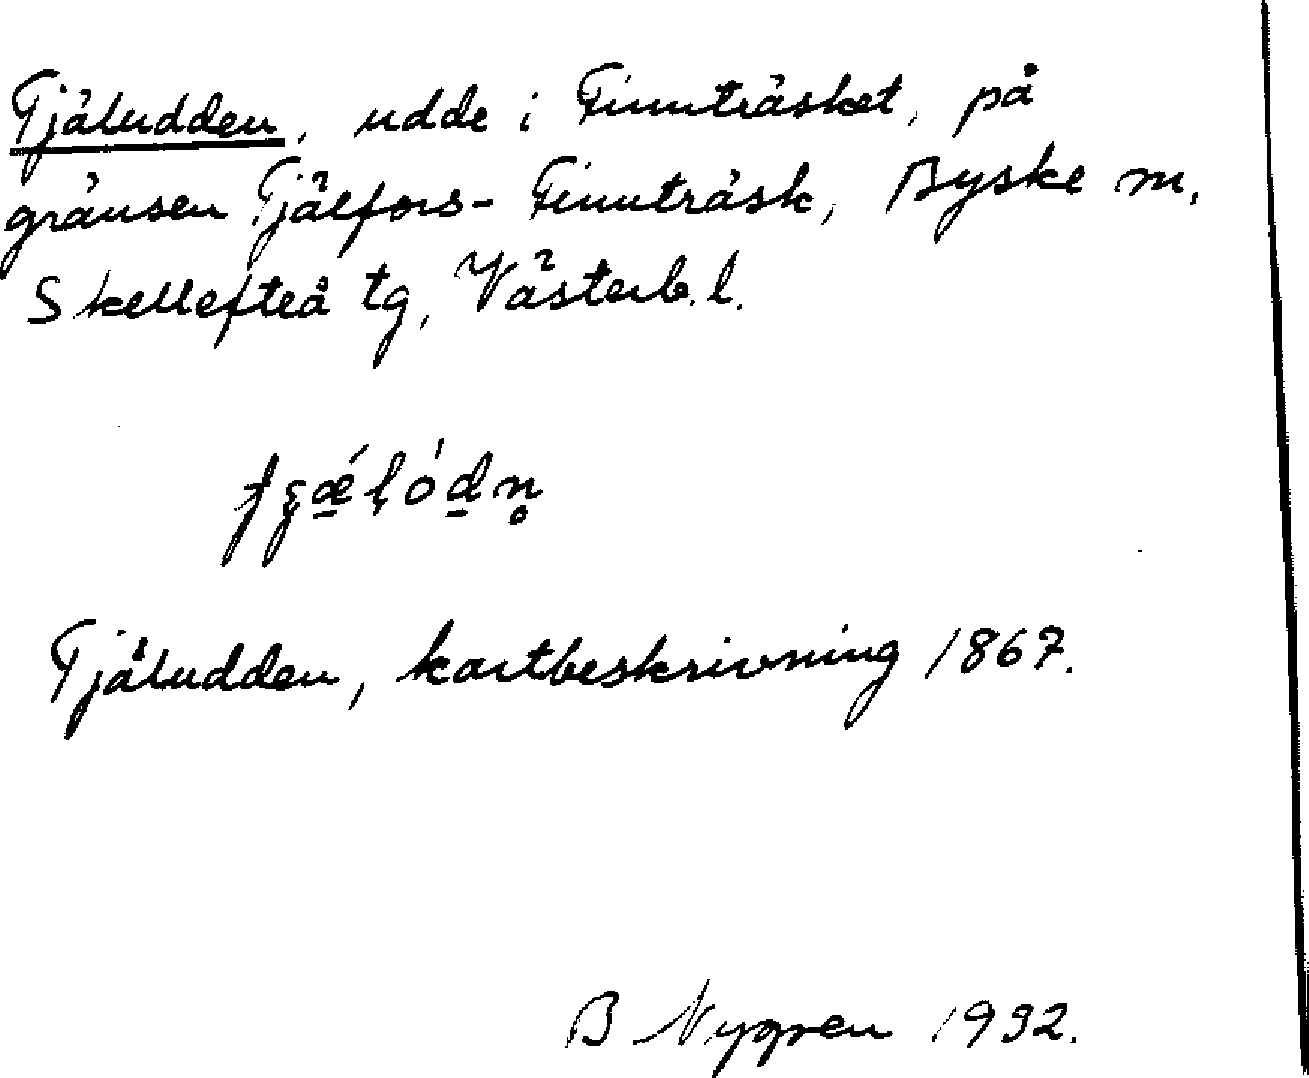 Tjäludden, udde i Finnträsket, på
gränsen Tjälfors-Finnträsk, Byske m.
Skellefteå tg, Västerb. l.
Tjäludden, kartbeskrivning 1867.
B Nygren 1932.